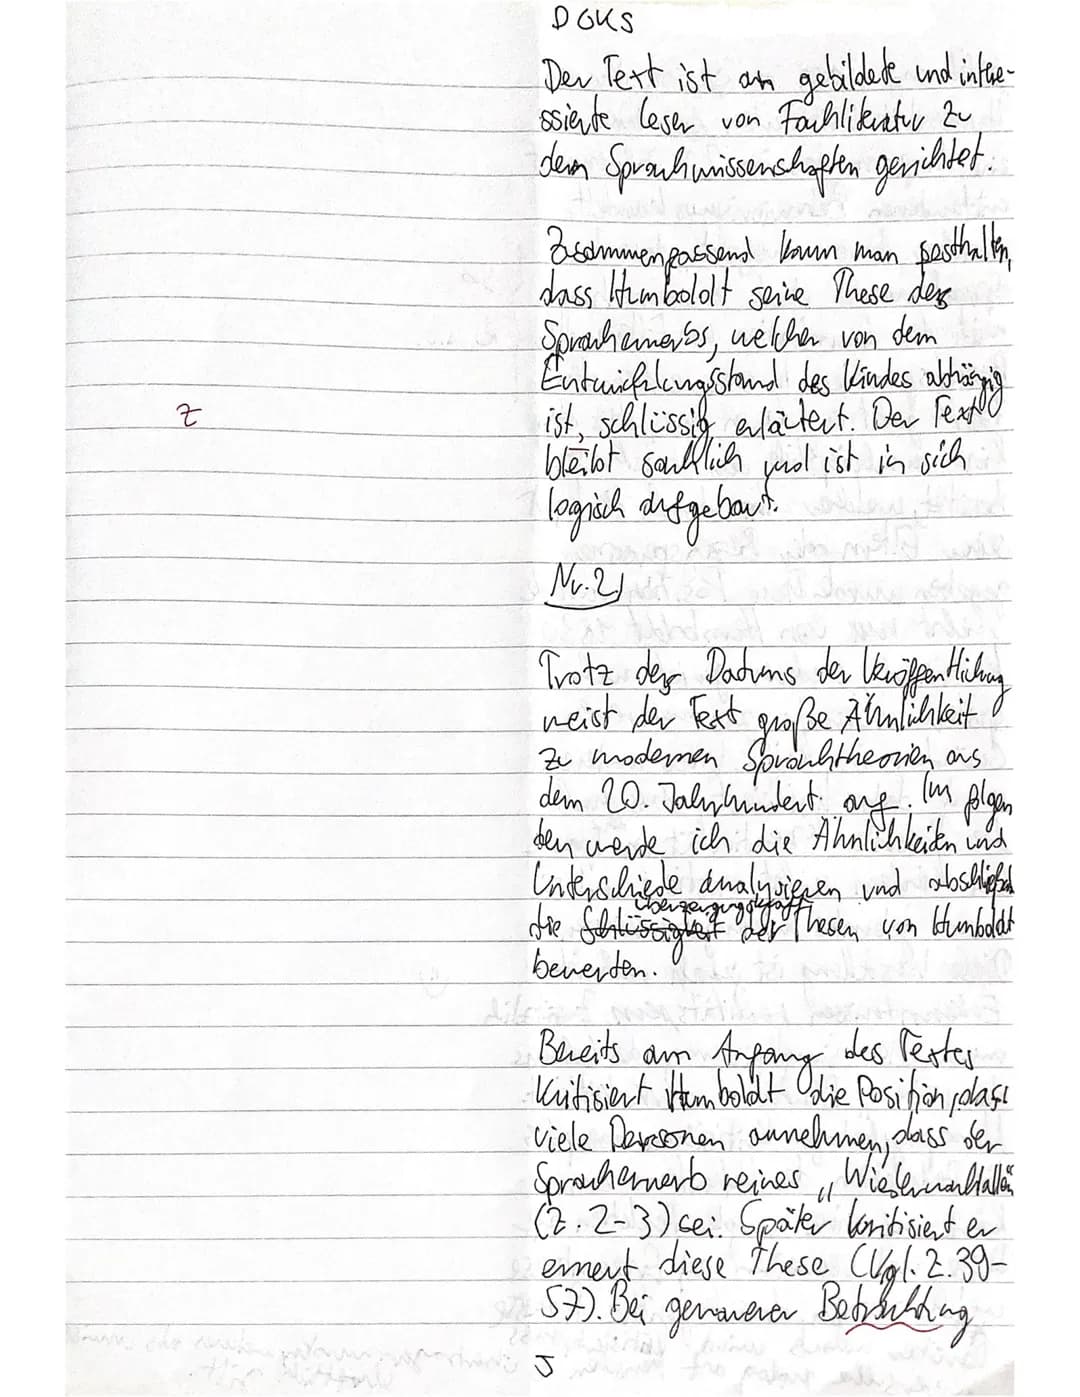 DGKS
Der Text ist an gebildete und intere-
ssierte Leser von Fachliteratur zu
den Sprachwissenschaften gerichtet.
Zusammenfassend kann man festhalten,
dass Humboldt seine These des
Spracherwerbs, welcher von dem
Entwicklungsstand des Kindes abhängig
Z
ist, schlüssig erläutert. Der Text
bleibt sachlich und ist in sich
logisch aufgebaut.
Nr. 2)
Trotz des Datums der Veröffentlichung
weist der Text große Ähnlichkeit
zu modernen Sprachtheorien aus
dem 20. Jahrhundert auf. Im folgen
den werde ich die Ähnlichkeiten und
Unterschiede analysieren und abschließend
überzeugungskraft
die Schlüssigkeit der Thesen von Humboldt
bewerten.
Bereits am Anfang des Textes
kritisiert Humboldt die Position, dass
viele Personen annehmen, dass der
Spracherwerb reines „Wiederwahllen"
(Z. 2-3) sei. Später kritisiert er
erneut diese These (Vgl. Z. 39-
57). Bei genauerer Betrachtung